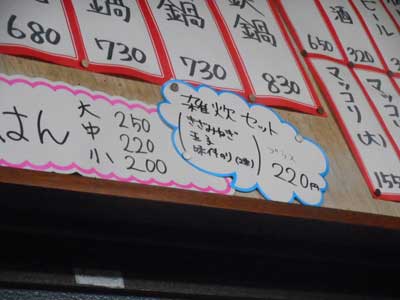 鍋
680
鍋
730
鍋
730
鍋
830
酒
650
ビール
320
マッコリ
マッコリ(大)
155
はん
大 250
中 220
小 200
雑炊セット
ささみねぎ
玉子
味付のり(
プラス
220円